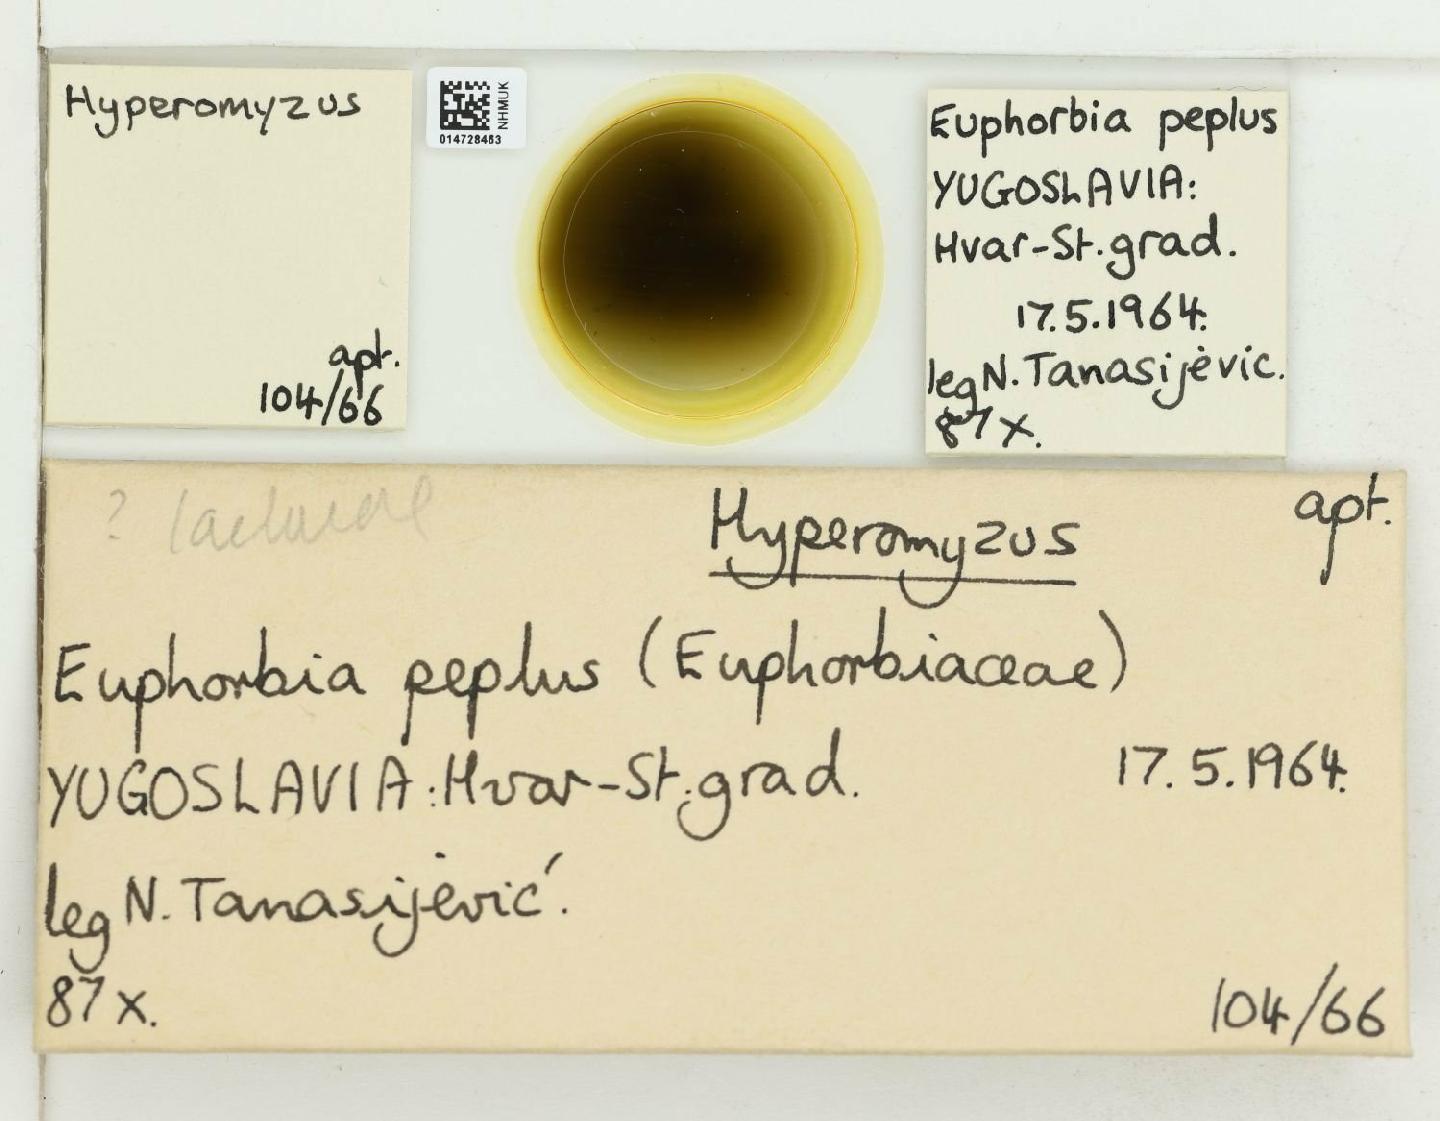 Hyperomyzus
apt.
104/66
NHMUK
014728463
Euphorbia peplus
YUGOSLAVIA:
Hvar-St.grad.
17.5.1964.
leg N. Tanasijevic.
87x.
? lactucae
Hyperomyzus
apt.
Euphorbia peplus (Euphorbiaceae)
YUGOSLAVIA: Hvar-St.grad.
17.5.1964.
leg N. Tanasijević.
87x.
104/66